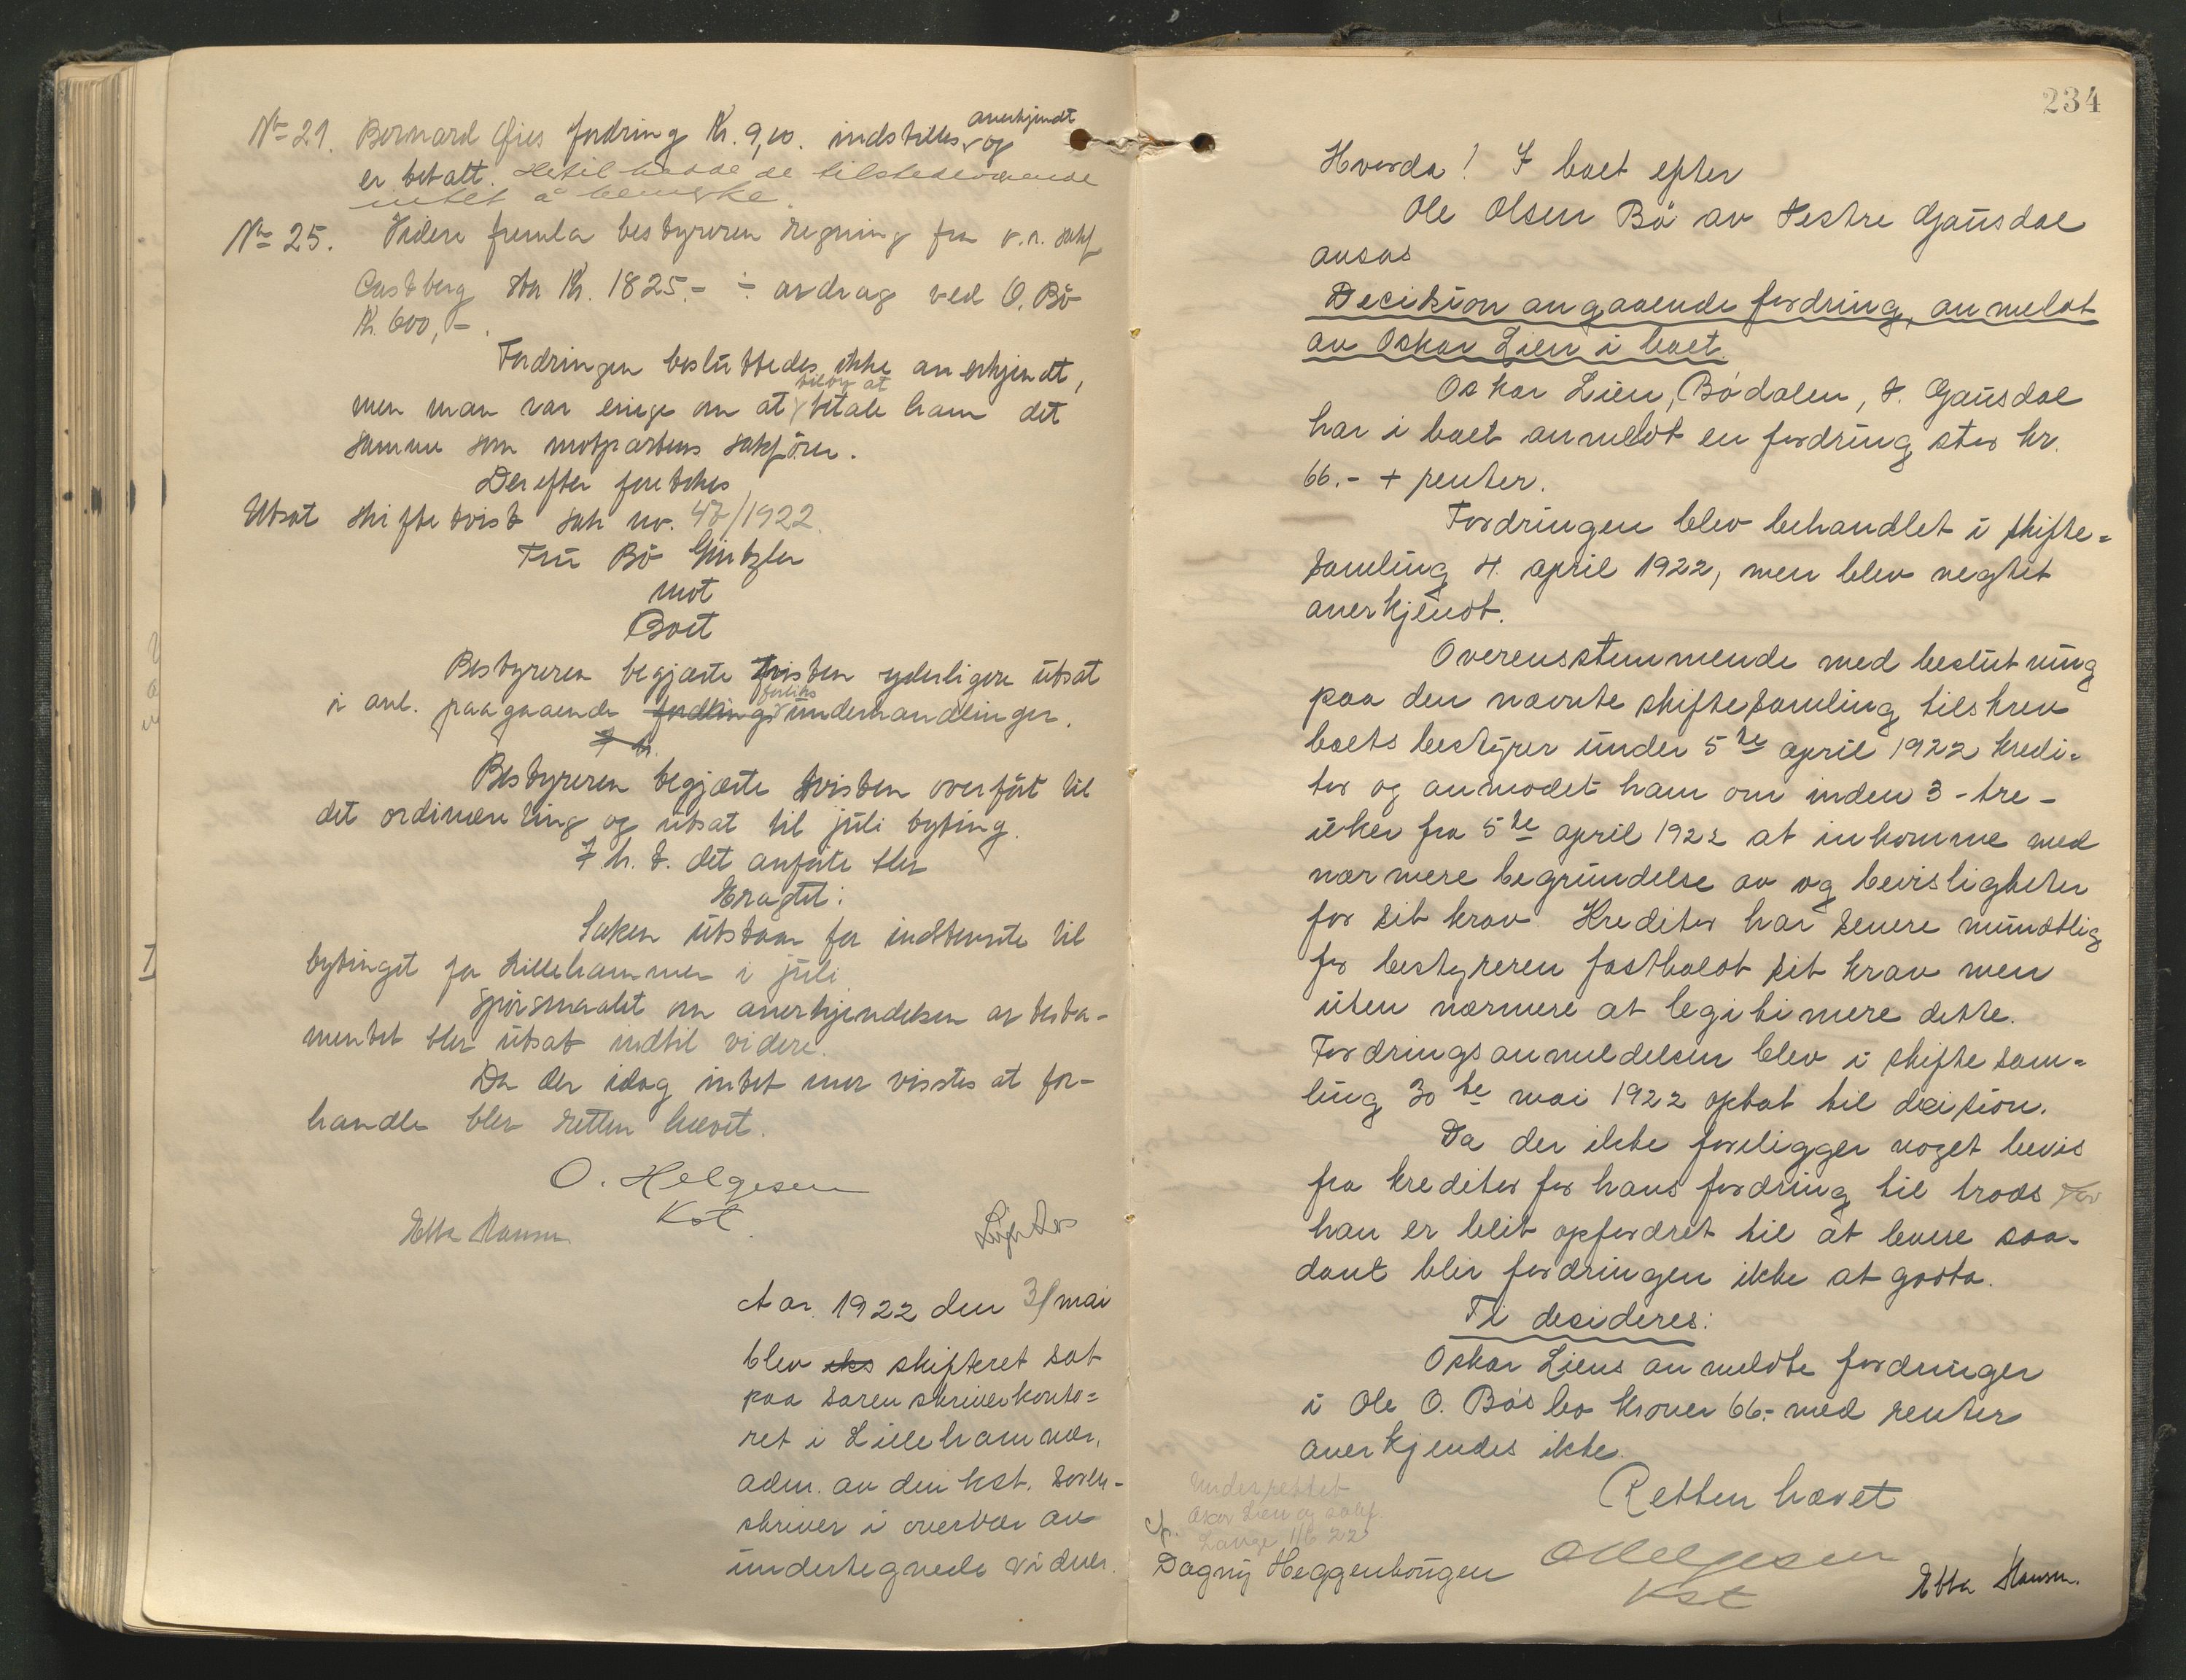 No 21. Bernard Gies fordring Kr. 9,10. indstilles anerkjendt og
er betalt. Hertil hadde de tilstedeværende
intet å bemerke.
No 25. Videre fremla bestyreren regning fra o.r. sakf
Castberg stor Kr. 1825.- ÷ avdrag ved O. Bö
Kr. 600,-.
Fordringen besluttedes ikke anerkjendt,
men man var enige om at tilby at betale ham det
samme som motpartens sakförer.
Derefter foretokes
Utsat skiftetvist sak nr. 47/1922.
Fru Bö Gintzler
mot
Boet
Bestyreren begjærte tvisten yderligere utsat
i anl. paagaaende forliks underhandlinger.
Bestyreren begjærte tvisten overfört til
det ordinære ting og utsat til juli byting.
I h. t. det anförte blev
Eragtet:
Saken utstaar for indtemte til
bytinget for Lillehammer i juli
Spörsmaalet om anerkjendelsen av testa-
mentet blev utsat indtil videre.
Da der idag intet mer visstes at for-
handle blev retten hævet.
O. Helgesen
Kst.
Ebba Hansen
Aar 1922 den 31 mai
blev skifteret sat
paa sorenskriverkonto=
ret i Lillehammer,
adm. av den kst. soren-
skriver i overvær av
undertegnede vidner.
234
Hvorda! I boet efter
Ole Olsen Bö av Vestre Gausdal
avsas
Decision angaaende fordring, anmeldt
av Oskar Lien i boet.
Oskar Lien, Bödalen, V. Gausdal
har i boet anmeldt en fordring stor kr.
66.- + renter.
Fordringen blev behandlet i skifte=
samling 4. april 1922, men blev negtet
anerkjendt.
Overensstemmende med beslutning
paa den nævnte skiftesamling tilskrev
boets bestyrer under 5te april 1922 kredi=
tor og anmodet ham om inden 3 - tre -
uker fra 5te april 1922 at inkomme med
nærmere begrundelse av og bevisligheter
for sit krav. Kreditor har senere mundtlig
for bestyreren fastholdt sit krav men
uten nærmere at legitimere dette.
Fordringsanmeldelsen blev i skiftesam=
ling 30te mai 1922 optat til decision.
Da der ikke foreligger noget bevis
fra kreditor for hans fordring til trods for
han er blit opfordret til at levere saa-
dant blir fordringen ikke at godta.
Ti desideres:
Oskar Liens anmeldte fordringer
i Ole O. Bös bo kroner 66.- med renter
anerkjendes ikke.
Retten hævet
Underrettet
Oskar Lien og sakf.
Lange 1/6 22
Dagny Heggenhougen
O Helgesen
Kst
Ebba Hansen.